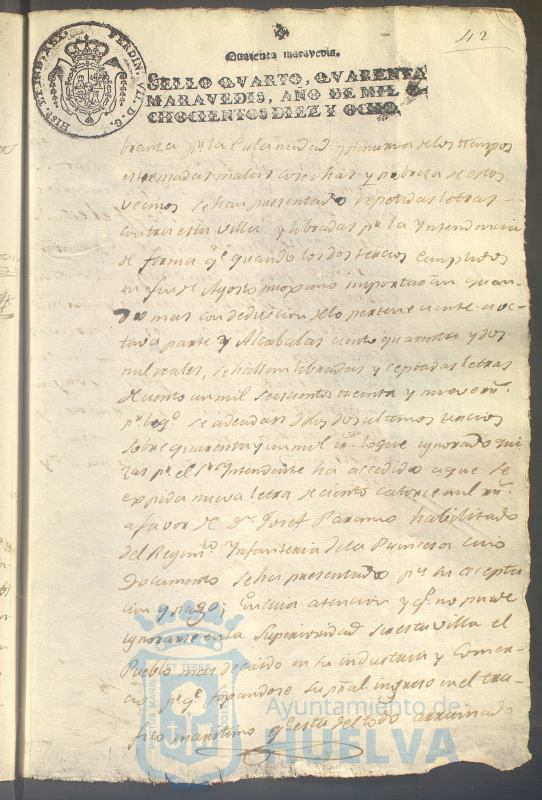 42
HISP. ET IND. REX. FERDIN. VII. D. G.
Quarenta maravedis.
SELLO QVARTO, QVARENTA
MARAVEDIS, AÑO DE MIL O-
CHOCIENTOS DIEZ Y OCHO.
branza pr. la Calamidad y penurias de los tiempos
estremadas malas cosechas y pobreza de estos
vecinos se han presentado repetidas letras
contra esta villa y libradas pr. la Yntendencia
de forma qe. quando los dos tercios cumplidos
en fin de Agosto proximo importarán quan-
do mas con deducion de lo perteneciente a oc-
tava parte y Alcabalas ciento quarenta y dos
mil reales, se hallan libradas y aceptadas letras
de ciento un mil seiscientos treinta y nueve rrs.
pr. lo qe. se adeudan de los dos ultimos tercios
sobre quarenta y un mil rrs. lo que ignorado qui
zas pr. el Sor. Yntendente ha accedido a que se
expida nueva letra de ciento catorce mil rrs.
a favor de Dn. Josef Paramo habilitado
del Regimto. Ynfanteria de la Princesa cuio
Documento se ha presentado pa. su acepta
cion y pago; En cuia atencion y qe. no puede
ignorarse en la Superioridad ser esta villa el
Pueblo mas decaido en su industria y Comer-
cio pr. qe. fixandose su pral. ingreso en el tra-
fico maritimo qe. esta del todo arruinado
PORTUS MARIS ET TERRE CUSTODIA
Ayuntamiento de
HUELVA